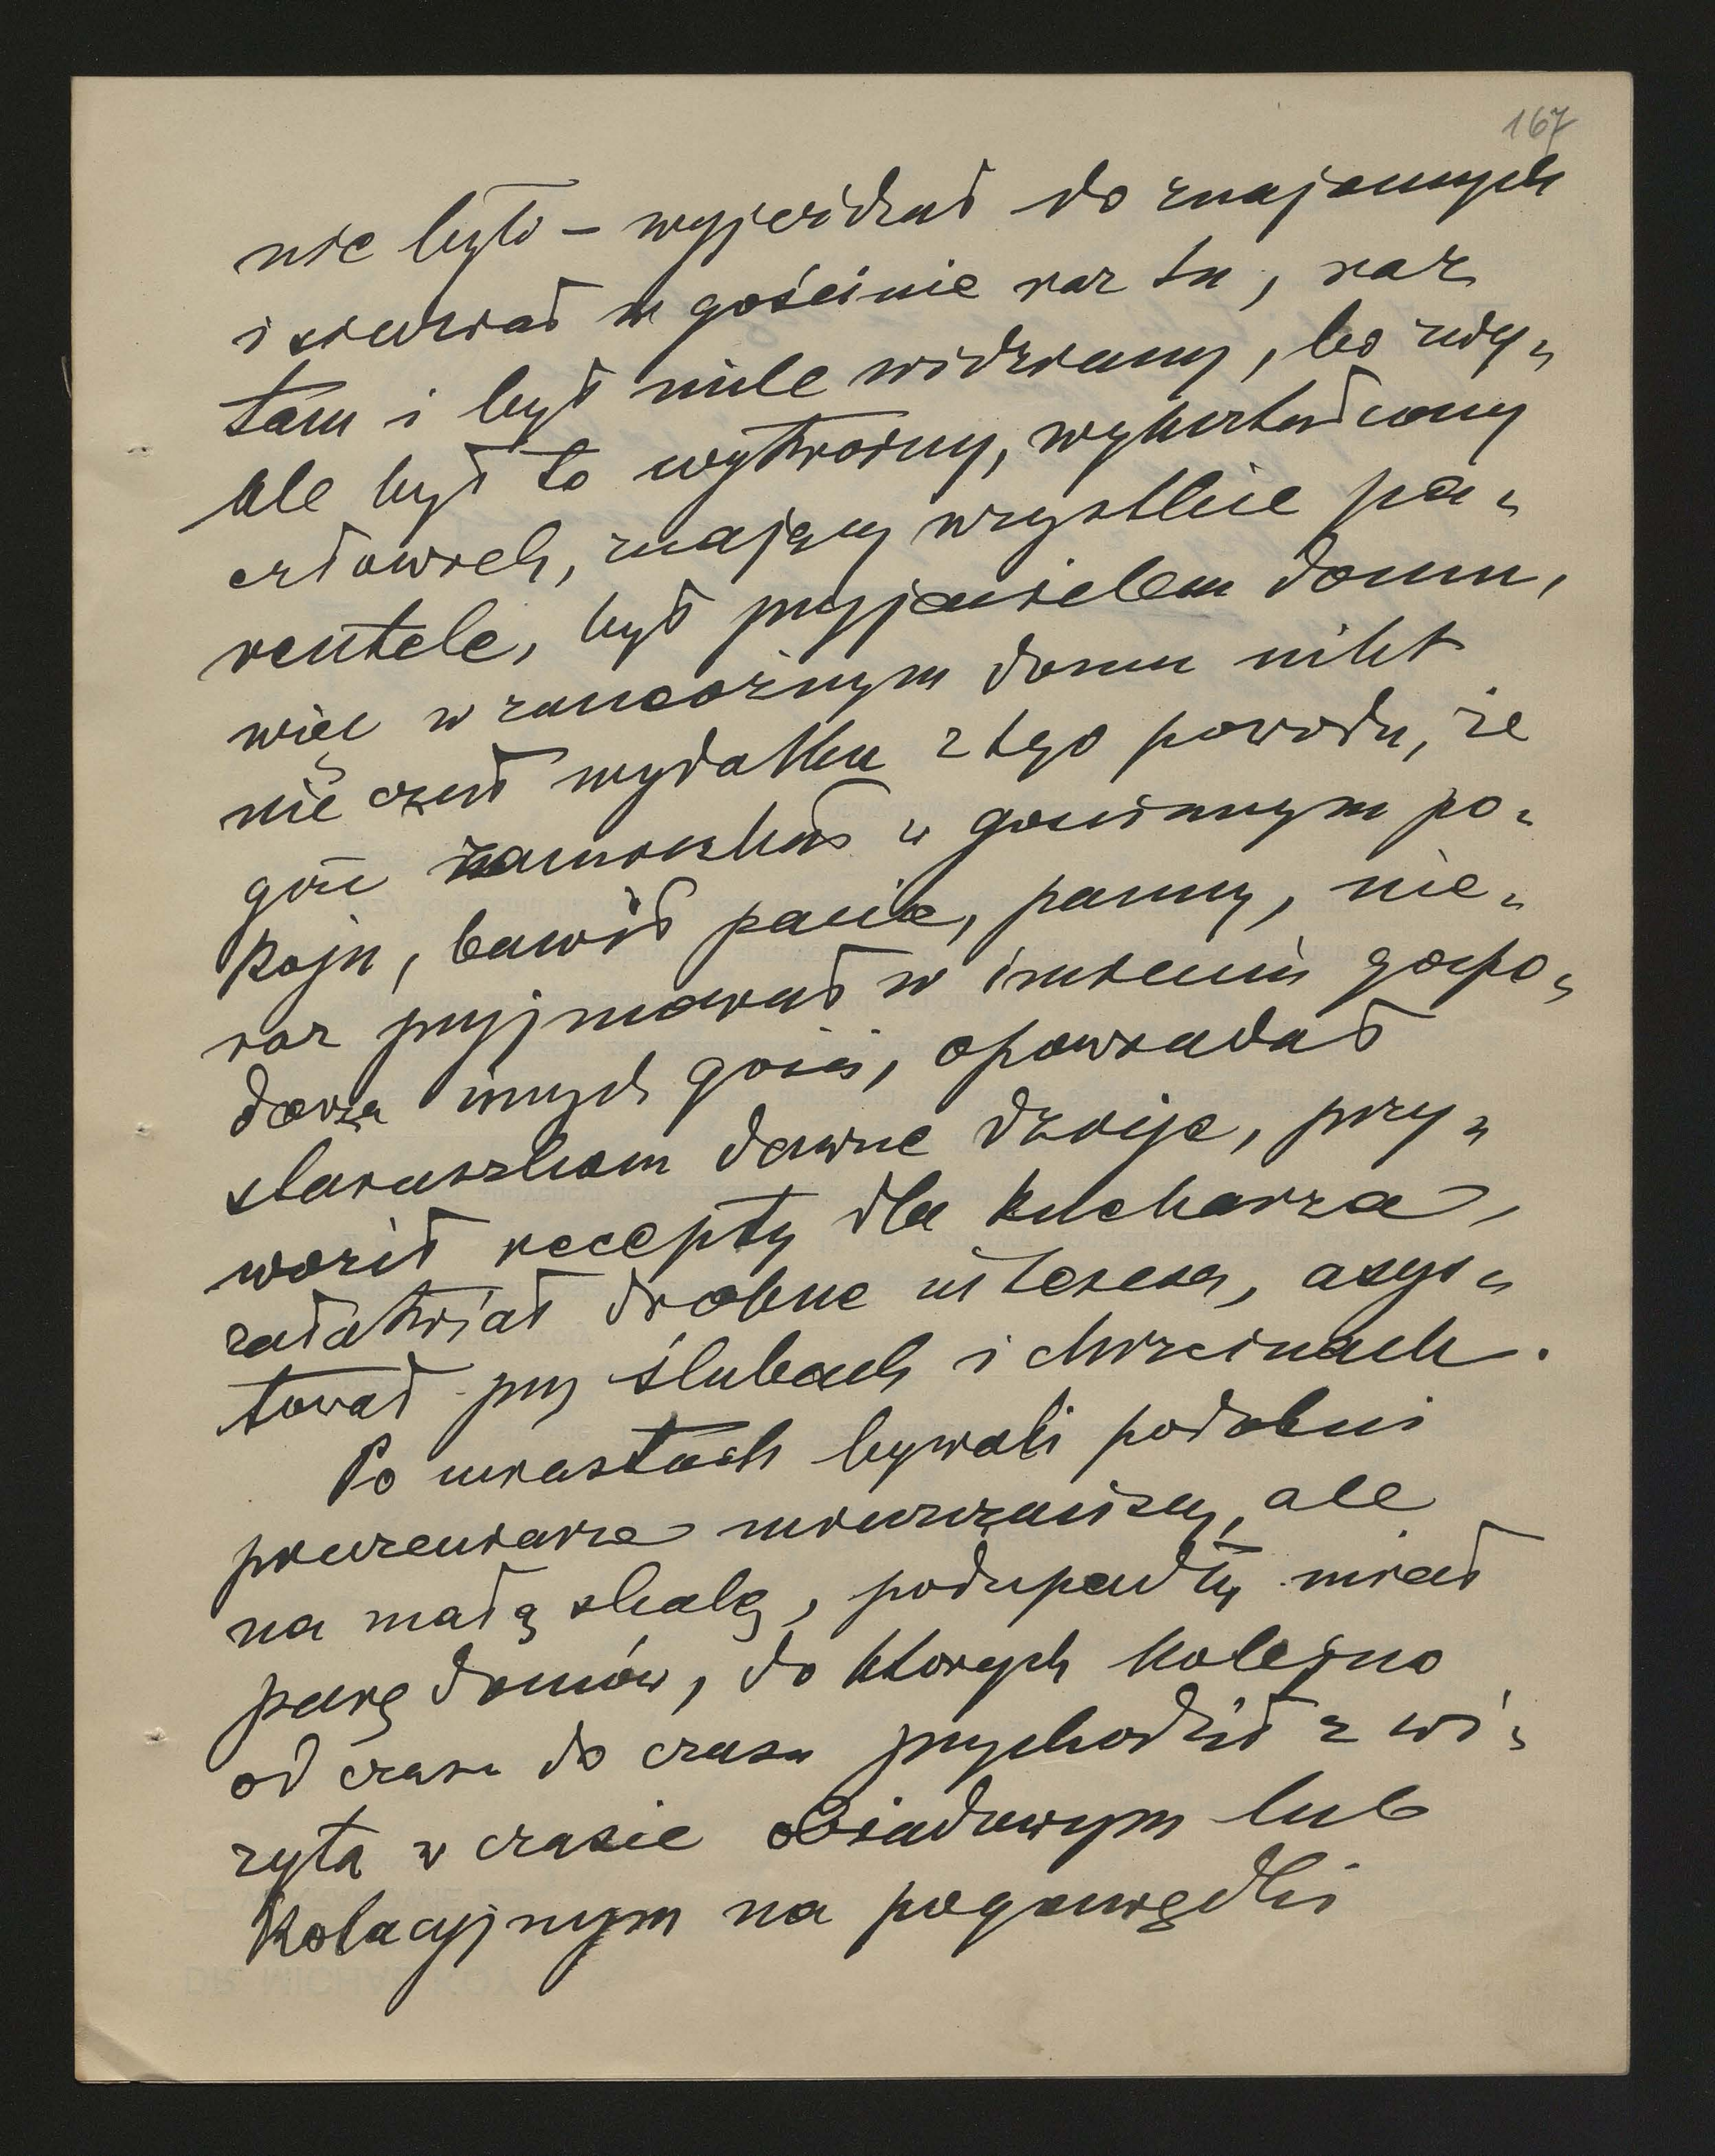 167
nie było – wyjeżdżał do znajomych
i siedział w gościnie raz tu, raz
tam i był mile widziany, bo zwy-
kle był to wytworny, wykształcony
człowiek, znający wszystkie pa-
rentele, był przyjacielem domu,
więc w zamożnym domu nikt
nie czuł wydatku z tego powodu, że
gość zamieszkał w gościnnym po-
koju, bawił panie, panny, nie-
raz przyjmował w imieniu gospo-
darza innych gości, opowiadał
staruszkom dawne dzieje, przy-
woził recepty dla kucharza,
załatwiał drobne interesa, asys-
tował przy ślubach i chrzcinach.
Po miastach bywali podobni
pieczeniarze mieszczańscy, ale
na małą skalę, podupadły miał
parę domów, do których kolejno
od czasu do czasu przychodził z wi-
zytą w czasie obiadowym lub
kolacyjnym na pogawędki